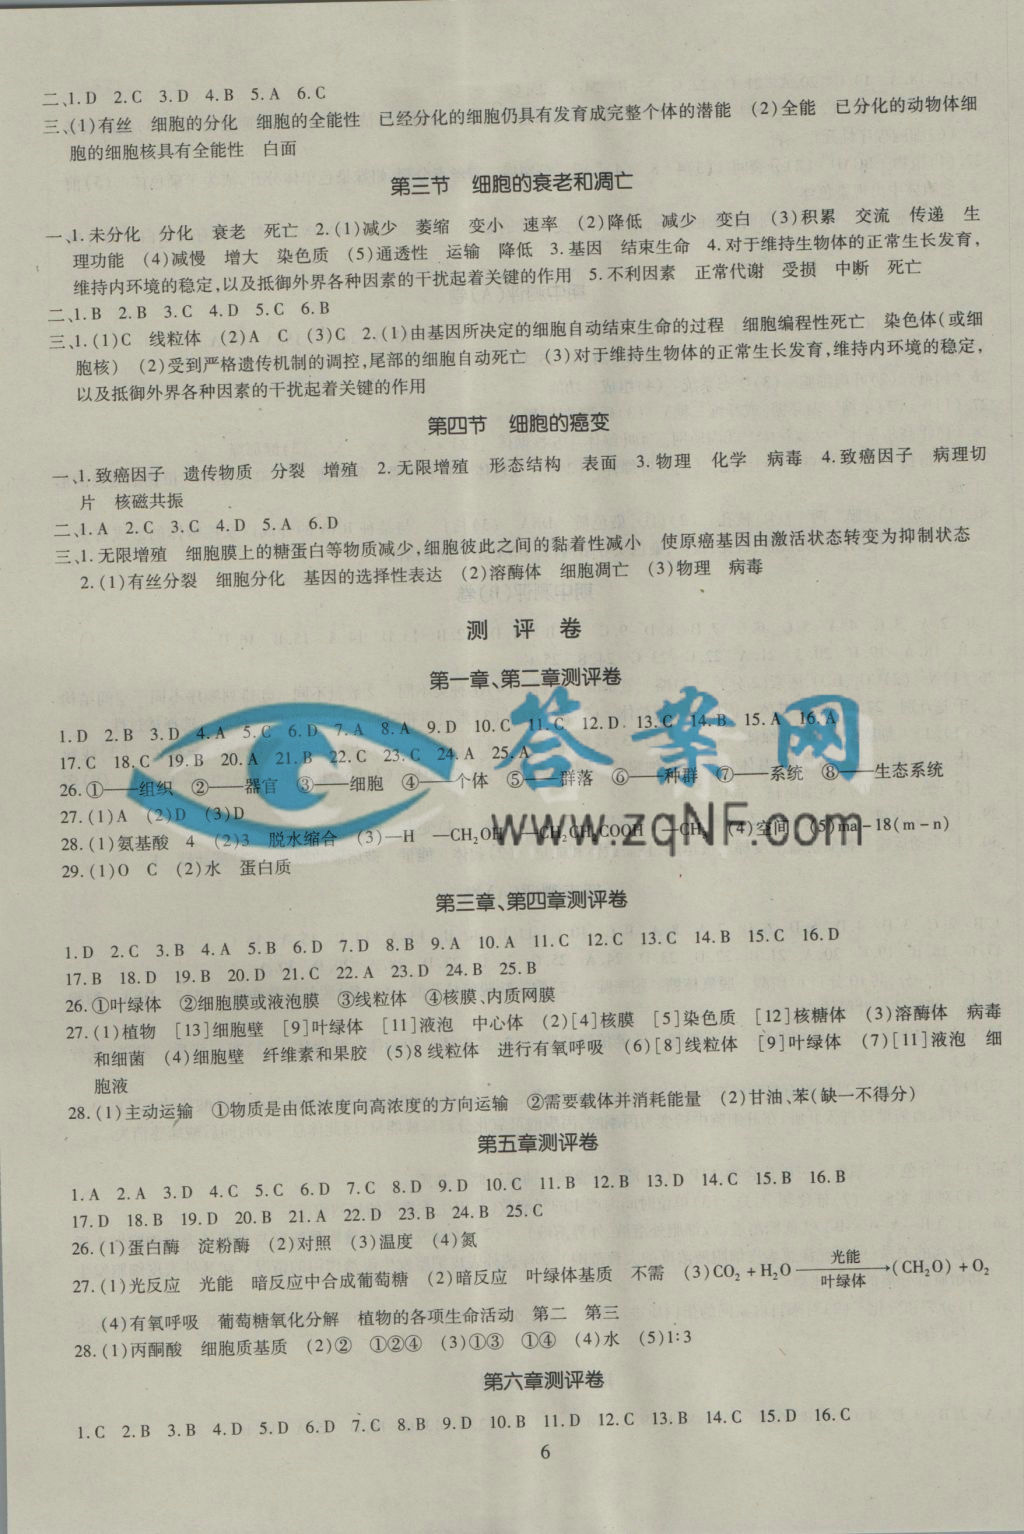 二、1.D 2.C 3.D 4.B 5.A 6.C
三、(1)有丝 细胞的分化 细胞的全能性 已经分化的细胞仍具有发育成完整个体的潜能 (2)全能 已分化的动物体细
胞的细胞核具有全能性 白面
第三节 细胞的衰老和凋亡
一、1.未分化 分化 衰老 死亡 2.(1)减少 萎缩 变小 速率 (2)降低 减少 变白 (3)积累 交流 传递 生
理功能 (4)减慢 增大 染色质 (5)通透性 运输 降低 3.基因 结束生命 4.对于维持生物体的正常生长发育,
维持内环境的稳定,以及抵御外界各种因素的干扰起着关键的作用 5.不利因素 正常代谢 受损 中断 死亡
二、1.B 2.B 3.C 4.D 5.C 6.B
三、1.(1)C 线粒体 (2)A C (3)C 2.(1)由基因所决定的细胞自动结束生命的过程 细胞编程性死亡 染色体(或细
胞核) (2)受到严格遗传机制的调控,尾部的细胞自动死亡 (3)对于维持生物体的正常生长发育,维持内环境的稳定,
以及抵御外界各种因素的干扰起着关键的作用
第四节 细胞的癌变
一、1.致癌因子 遗传物质 分裂 增殖 2.无限增殖 形态结构 表面 3.物理 化学 病毒 4.致癌因子 病理切
片 核磁共振
二、1.A 2.C 3.C 4.D 5.A 6.D
三、1.无限增殖 细胞膜上的糖蛋白等物质减少,细胞彼此之间的黏着性减小 使原癌基因由激活状态转变为抑制状态
2.(1)有丝分裂 细胞分化 基因的选择性表达 (2)溶酶体 细胞凋亡 (3)物理 病毒
测 评 卷
第一章、第二章测评卷
1.D 2.B 3.D 4.A 5.C 6.D 7.A 8.A 9.D 10.C 11.C 12.D 13.C 14.B 15.A 16.A
17.C 18.C 19.B 20.A 21.B 22.C 23.C 24.A 25.A
26.①——组织 ②——器官 ③——细胞 ④——个体 ⑤——群落 ⑥——种群 ⑦——系统 ⑧——生态系统
27.(1)A (2)D (3)D
28.(1)氨基酸 4 (2)3 脱水缩合 (3)—H —CH₂OH —CH₂CH₂COOH —CH₃ (4)空间 (5)ma-18(m-n)
29.(1)O C (2)水 蛋白质
答案网
www.zqNF.com
第三章、第四章测评卷
1.D 2.C 3.B 4.A 5.B 6.D 7.D 8.B 9.A 10.A 11.C 12.C 13.C 14.B 15.C 16.D
17.B 18.D 19.B 20.D 21.C 22.A 23.D 24.B 25.B
26.①叶绿体 ②细胞膜或液泡膜 ③线粒体 ④核膜、内质网膜
27.(1)植物 [13]细胞壁 [9]叶绿体 [11]液泡 中心体 (2)[4]核膜 [5]染色质 [12]核糖体 (3)溶酶体 病毒
和细菌 (4)细胞壁 纤维素和果胶 (5)8线粒体 进行有氧呼吸 (6)[8]线粒体 [9]叶绿体 (7)[11]液泡 细
胞液
28.(1)主动运输 ①物质是由低浓度向高浓度的方向运输 ②需要载体并消耗能量 (2)甘油、苯(缺一不得分)
第五章测评卷
1.A 2.A 3.D 4.C 5.C 6.D 7.C 8.D 9.D 10.C 11.B 12.B 13.D 14.C 15.B 16.B
17.D 18.B 19.D 20.B 21.A 22.D 23.B 24.B 25.C
26.(1)蛋白酶 淀粉酶 (2)对照 (3)温度 (4)氮
27.(1)光反应 光能 暗反应中合成葡萄糖 (2)暗反应 叶绿体基质 不需 (3)CO₂+H₂O 光能 叶绿体 →(CH₂O)+O₂
(4)有氧呼吸 葡萄糖氧化分解 植物的各项生命活动 第二 第三
28.(1)丙酮酸 细胞质基质 (2)② ①②④ (3)①③ ①④ (4)水 (5)1∶3
第六章测评卷
1.C 2.B 3.B 4.D 5.D 6.D 7.C 8.B 9.D 10.B 11.D 12.C 13.B 14.C 15.D 16.C
6